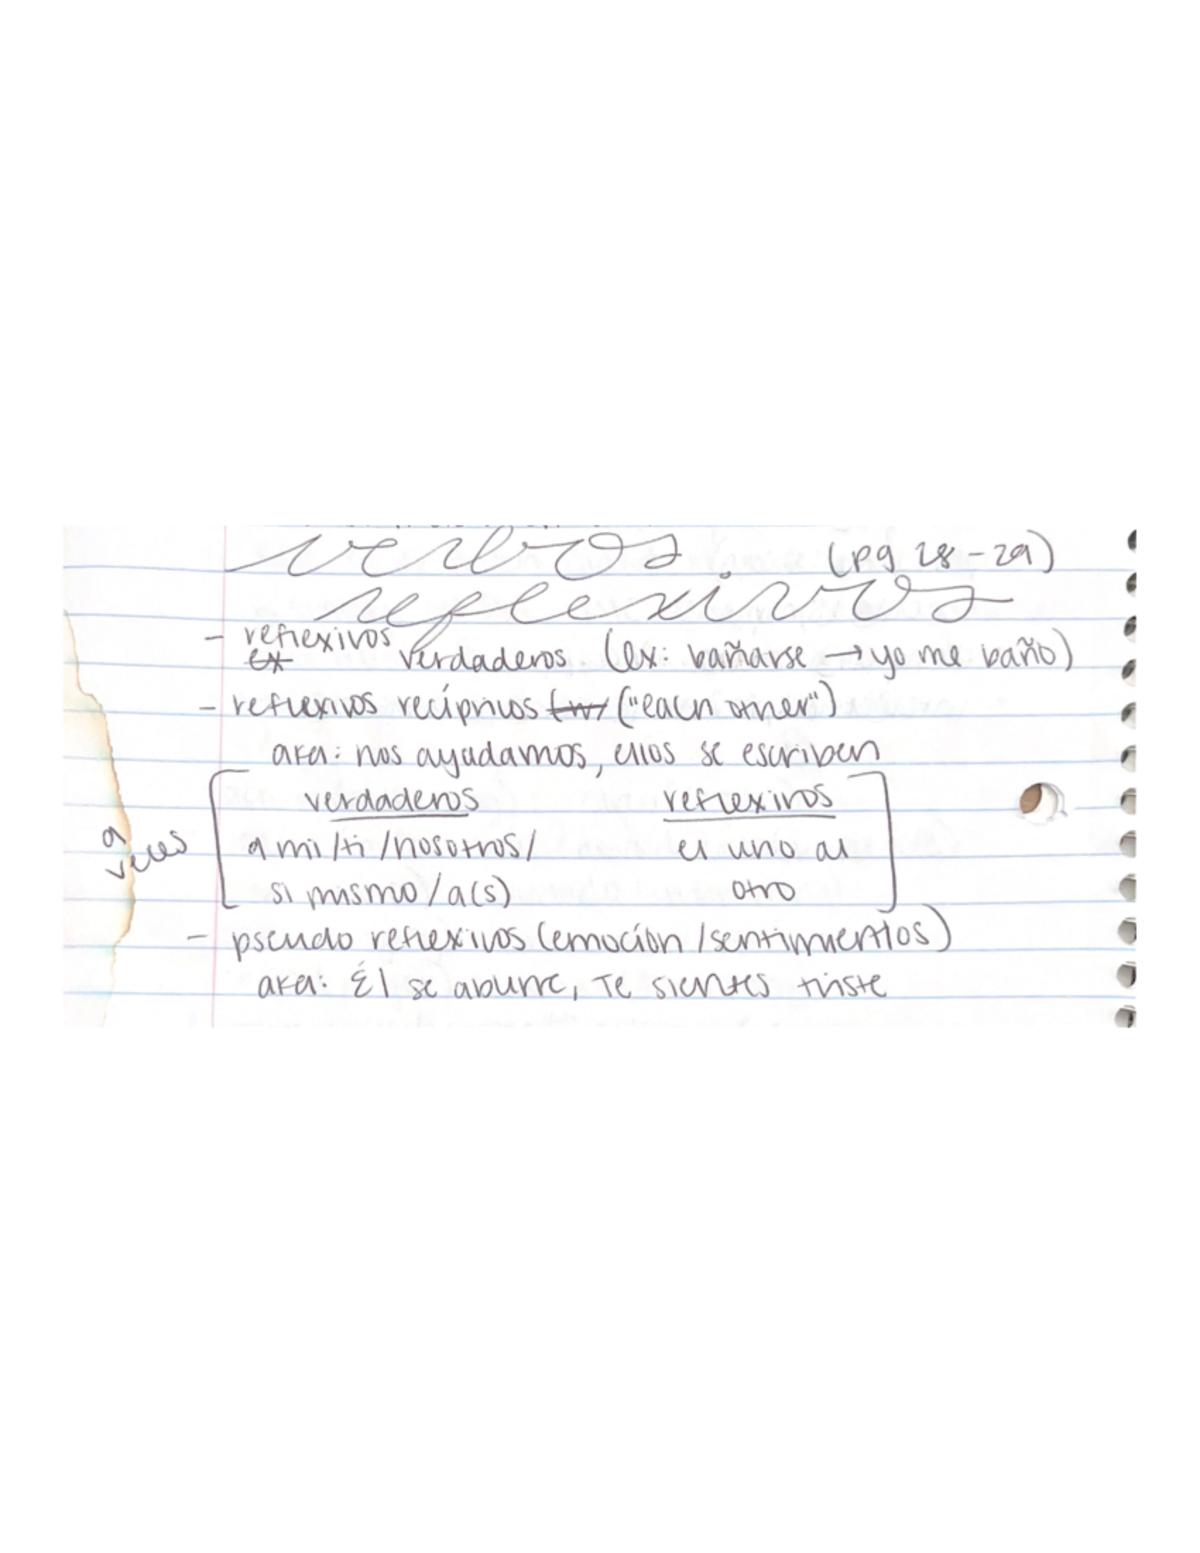 verbos (pg 28-29)
reflexivos
- reflexivos verdaderos (ex: bañarse → yo me baño)
ex
- reflexivos recíprivos (w/ ("each other")
aka: nos ayudamos, ellos se escriben
verdaderos reflexivos
a veces
a mi/ti/nosotros/ el uno al
si mismo/a(s) otro
- pseudo reflexivos (emoción/sentimientos)
aka: Él se aburre, Te sientes triste